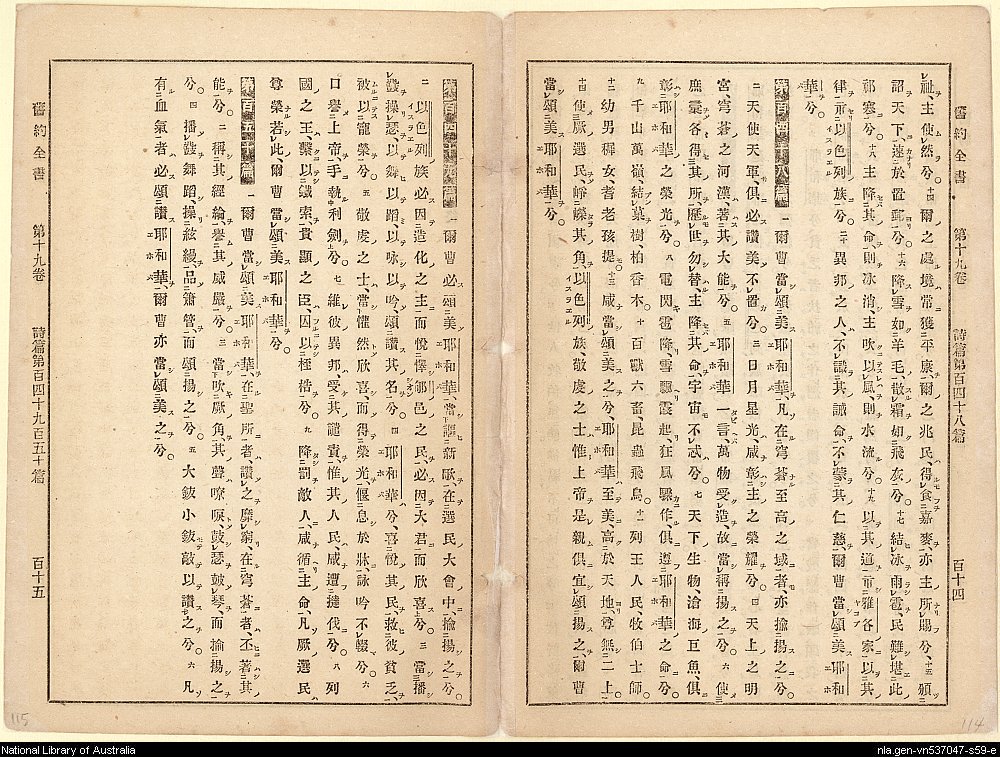 舊約全書 第十九卷 詩篇第百四十八篇 百十四
祉、主使然兮。十四 爾之處境常獲平康、爾之兆民、得食嘉麥、亦主所賜兮、十五 頒
詔天下、速於置郵兮。十六 降雪如羊毛、散霜如飛灰兮。十七 結冰雨雹、民難堪此
祁寒兮。十八 主降其命則冰消、主吹以風、則水流兮。十九 以其道示雅各家、以其
律示以色列族兮。二十 異邦之人、不識其誡命、不蒙其仁慈、爾曹當頌美耶和
華兮。
第百四十八篇 一 爾曹當頌美耶和華、凡在穹蒼至高之域者、亦揄揚之兮。
二 天使天軍、俱必讚美不置兮。三 日月星光、咸彰主之榮耀兮。四 天上之明
宮、穹蒼之河漢、著其大能兮。五 耶和華一言、萬物受造、故當稱揚之兮。六 使
庶彙各得其所、歷世勿替、主降其命、宇宙不忒兮。七 天下生物、滄海巨魚、俱
彰耶和華之榮光兮。八 電閃雹降、雪飄霞起、狂風驟作、俱遵耶和華之命兮。
九 千山萬嶺、結菓樹、柏香木。十 百獸六畜、昆蟲飛鳥。十一 列王人民、牧伯士師。
十二 幼男稺女、耆老孩提。十三 咸當頌美之兮、耶和華至美、高於天地、尊無二上
十四 使厥選民、崢嶸其角、以色列族、敬虔之士、惟上帝是親、俱宜頌揚之、爾曹
當頌美耶和華兮。
第百四十九篇 一 爾曹必頌美耶和華、當謳新歌、在選民大會中、揄揚之兮。
二 以色列族必因造化之主而悅懌、郇邑之民、必因大君而欣喜兮。三 當播
鼗操瑟、以舞以蹈、以咏以吟、頌讚其名兮。四 耶和華兮、喜悅其民、救彼貧乏、
被以寵榮兮。五 敬虔之士、當懽然欣喜、而得榮光、偃息於牀、詠吟不輟兮。六
口譽上帝、手執利劍兮。七 維彼異邦、受其譴責、惟其人民、咸遭撻伐兮。八 列
國之王、繫以鐵索、貴顯之臣、囚以桎梏兮。九 降罰敵人、咸循主命、凡厥選民
尊榮若此、爾曹當頌美耶和華兮。
第百五十篇 一 爾曹當頌美耶和華、在聖所者、讚之靡窮、在穹蒼者、丕著其
能兮。二 稱其經綸、譽其威嚴兮。三 當吹厥角、其聲嘹唳、鼓瑟鼓琴、而揄揚之
兮。四 播鼗舞蹈、操絃縵、品簫管、而頌揚之兮。五 大鈸小鈸、敲以讚之兮。六 凡
有血氣者、必頌讚耶和華、爾曹亦當頌美之兮。
舊約全書 第十九卷 詩篇第百四十九百五十篇 百十五
115
114
National Library of Australia
nla.gen-vn537047-s59-e